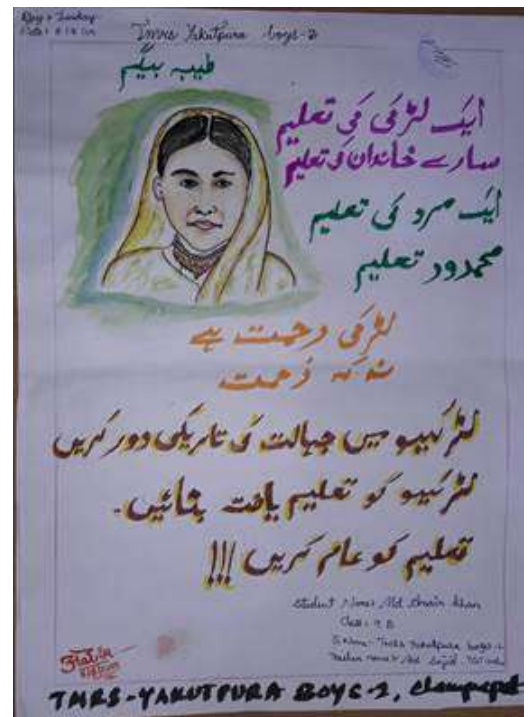 Tmrs Yakutpura boys-2
طیبہ بیگم
ایک لڑکی کی تعلیم
سارے خاندان کی تعلیم
ایک مرد کی تعلیم
محدود تعلیم
لڑکی رحمت ہے
نہ کہ زحمت
لڑکیو میں جہالت کی تاریکی دور کریں
لڑکیو کو تعلیم یافتہ بنائیں۔
تعلیم کو عام کریں !!!
Student Name: Md khan
Class: 9 B
S. Name: Tmrs Yakutpura boys-2
Name: Md. Sajid
TMRS-YAKUTPURA BOYS-2, Champapet